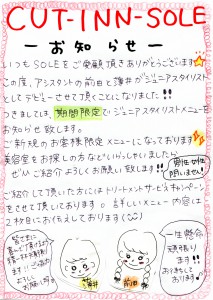 CUT-INN-SOLE
－お知らせ－
いつもSOLEをご愛顧頂きありがとうございます
この度、アシスタントの前田と薄井がジュニアスタイリスト
としてデビューさせて頂くことになりました!!
つきましては、期間限定でジュニアスタイリストメニューを
お知らせ致します。
ご新規のお客様限定メニューになっております
美容室をお探しの方などいらっしゃいましたら
ぜひご紹介よろしくお願い致します。
男性女性
問いません!
ご紹介して頂いた方にはトリートメントサービスキャンペーン
をさせて頂いております。詳しいメニュー内容は
2枚目にのせております
皆さまに
喜んで頂けるよう
お願い致
薄井
前田
一生懸命
頑張ります!!
お待ちして
おります